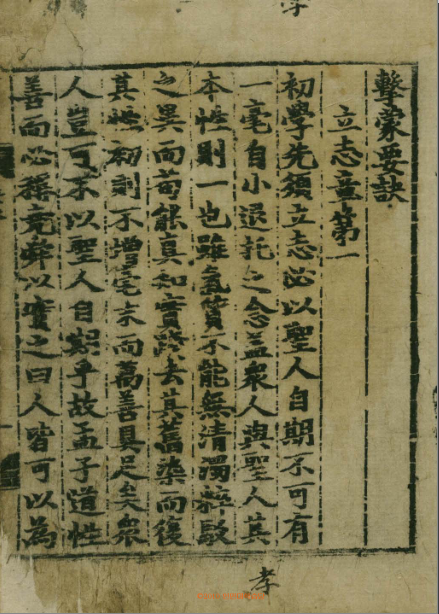 擊蒙要訣
立志章第一
初學先須立志必以聖人自期不可有
一毫自小退托之念盖衆人與聖人其
本性則一也雖氣質不能無清濁粹駁
之異而苟能真知實踐去其舊染而復
其性初則不增毫末而萬善具足矣衆
人豈可不以聖人自期乎故孟子道性
善而必稱堯舜以實之曰人皆可以為
孝